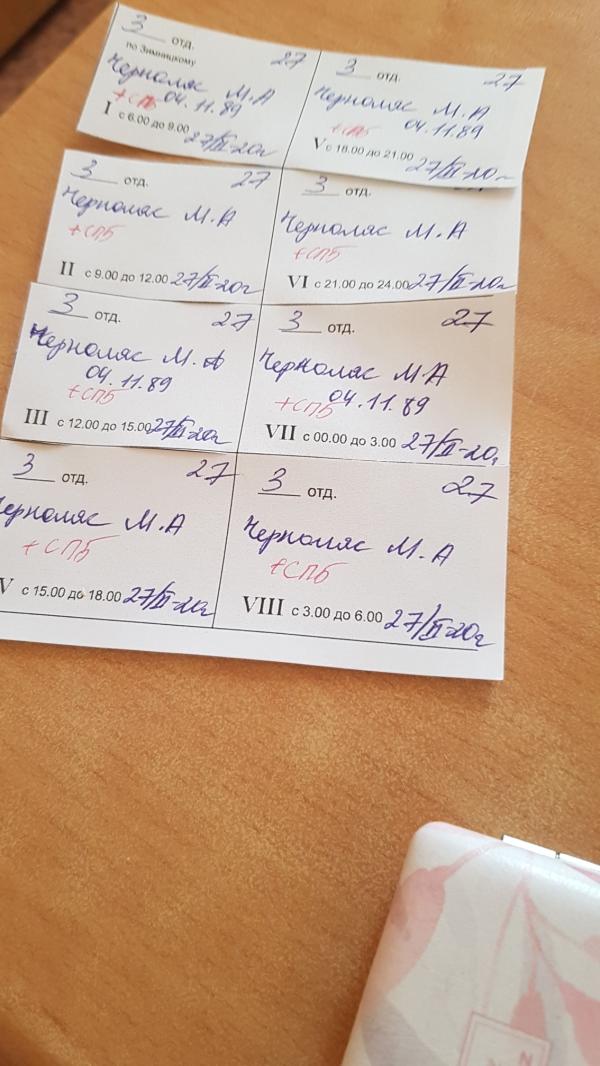 3 отд. 27
по Зимницкому
Черноляс М.А
+СПБ 04.11.89
I с 6.00 до 9.00 27/II-20г
3 отд. 27
Черноляс М.А
+СПБ 04.11.89
V с 18.00 до 21.00 27/II-20г
3 отд. 27
Черноляс М.А
+СПБ
II с 9.00 до 12.00 27/II-20г
3 отд.
Черноляс М.А
+СПБ
VI с 21.00 до 24.00 27/II-20г
3 отд. 27
Черноляс М.А
04.11.89
+СПБ
III с 12.00 до 15.00 27/II-20г
3 отд. 27
Черноляс М А
+СПБ 04.11.89
VII с 00.00 до 3.00 27/II-20г
3 отд. 27
Черноляс М.А
+СПБ
V с 15.00 до 18.00 27/II-20г
3 отд. 27
Черноляс М.А
+СПБ
VIII с 3.00 до 6.00 27/II-20г